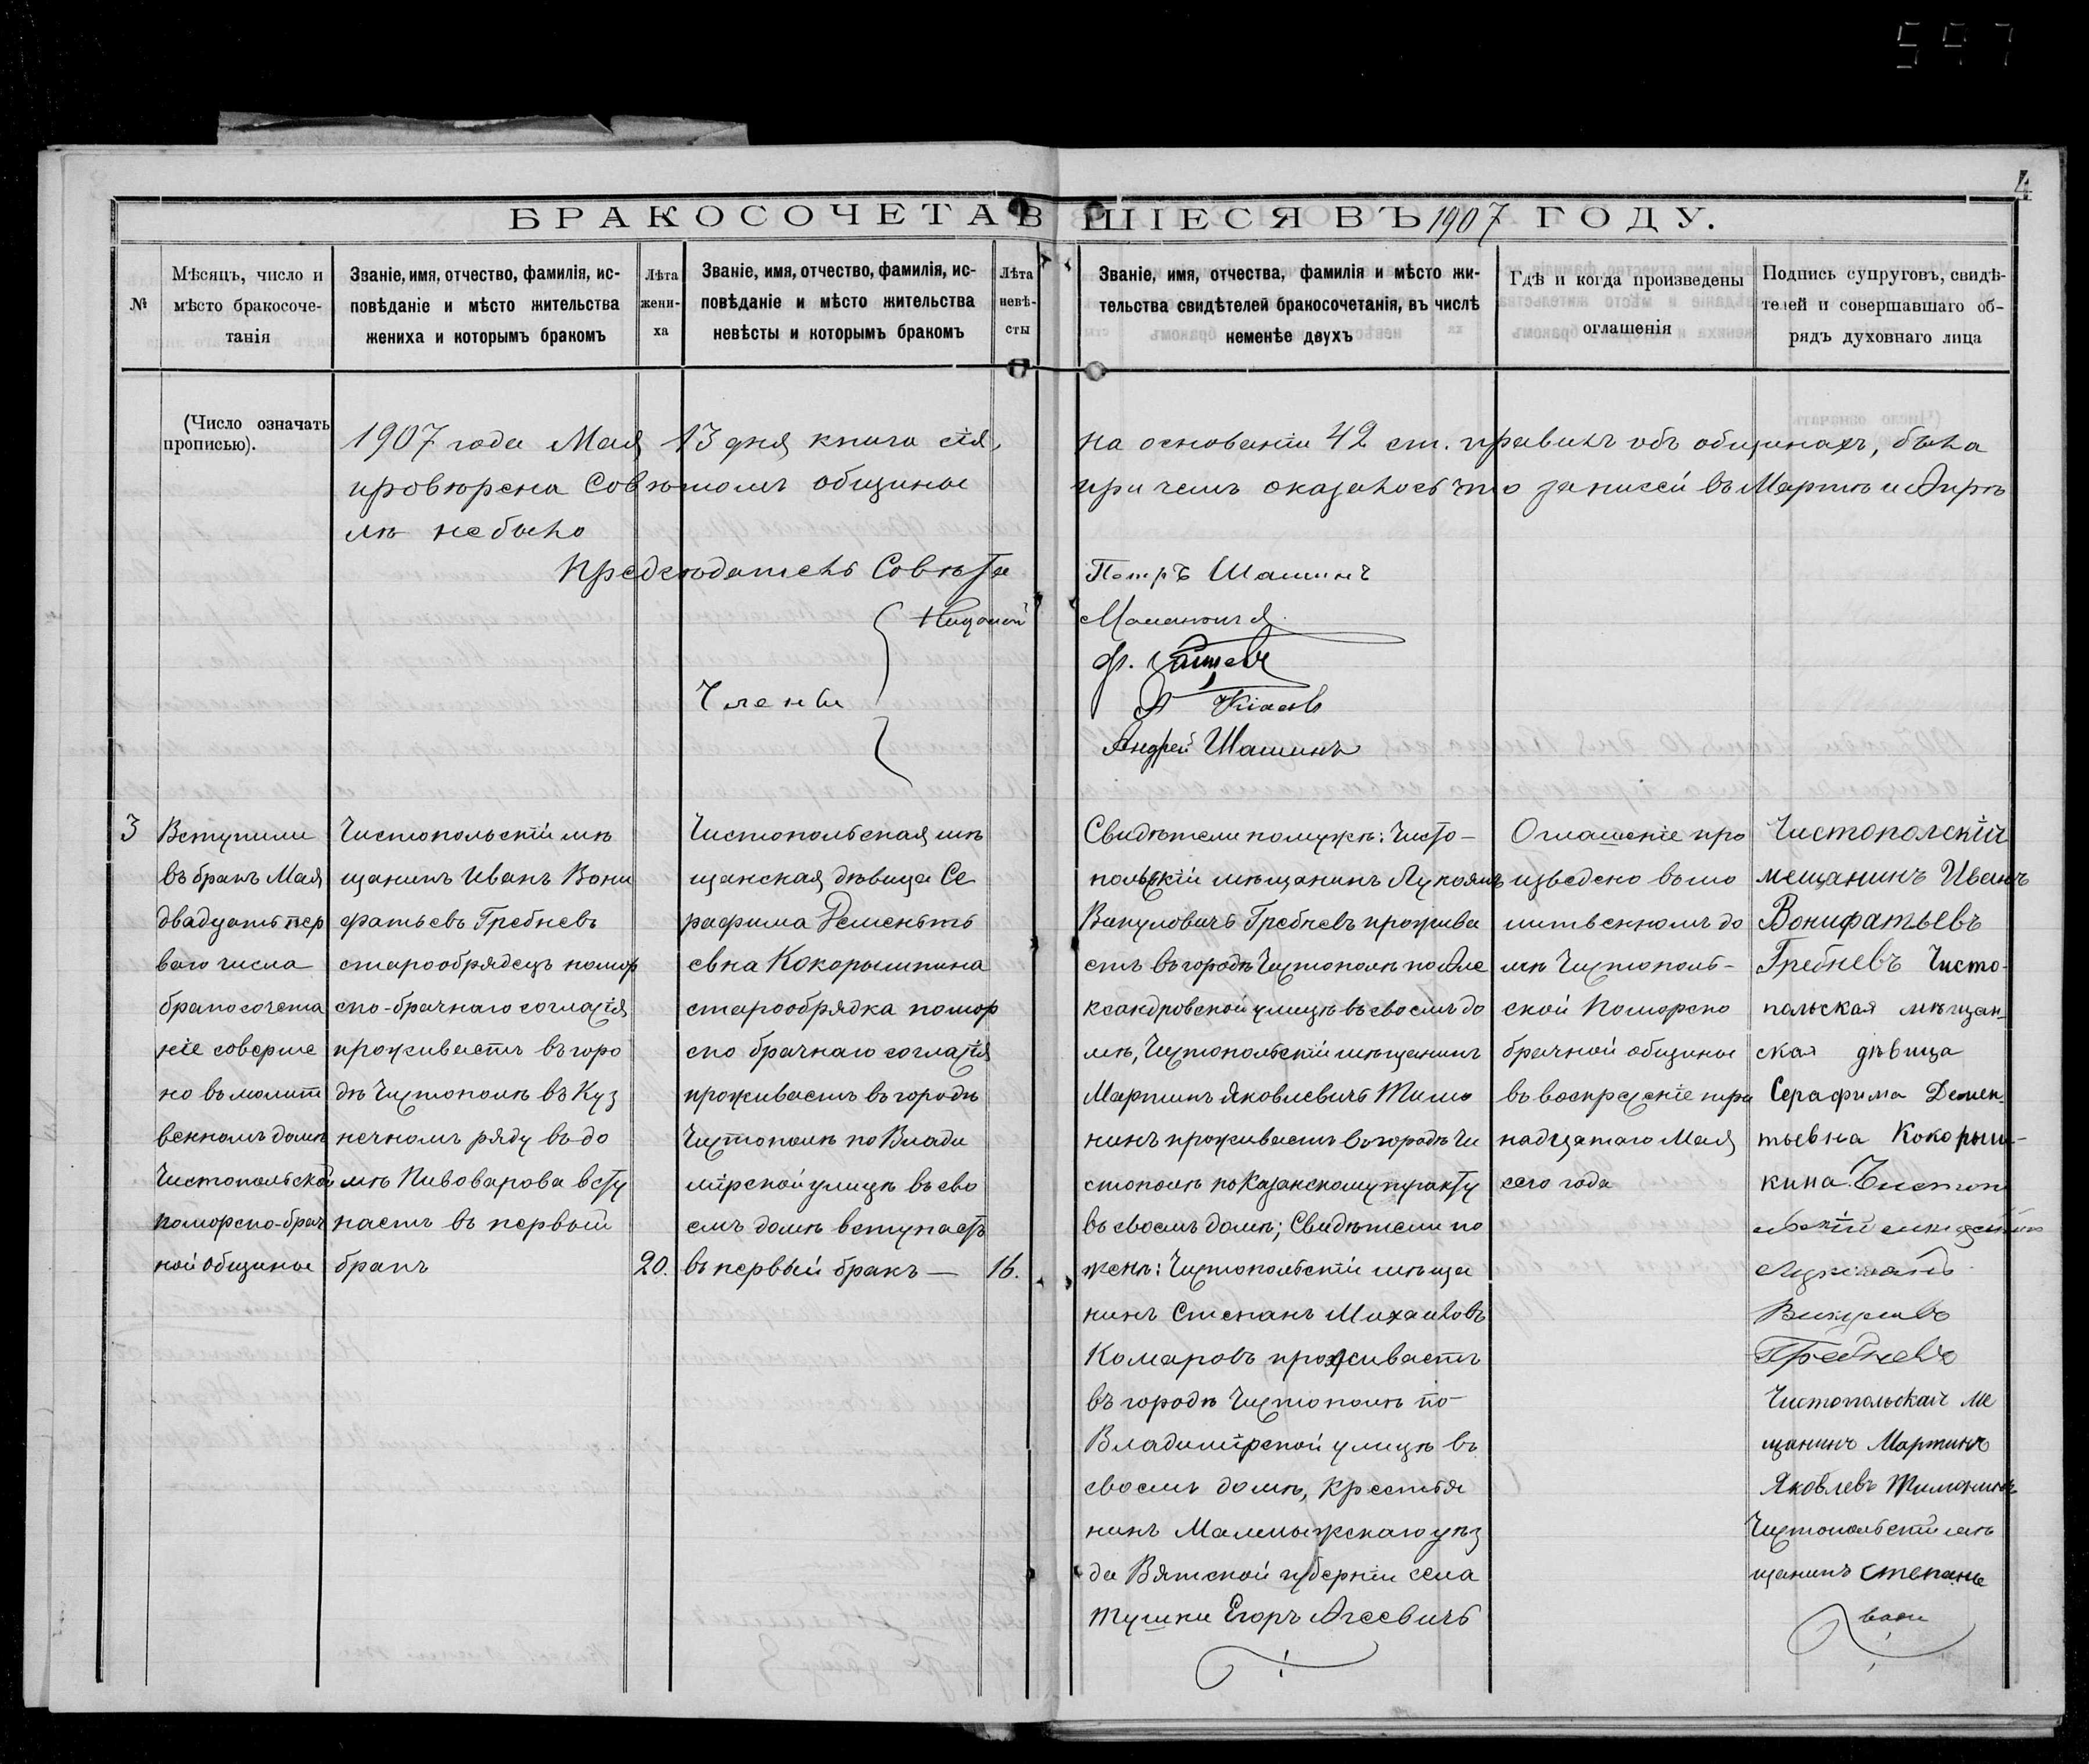 597
4
БРАКОСОЧЕТАВШІЕСЯ ВЪ 1907 ГОДУ.
№
Мѣсяцъ, число и
мѣсто бракосоче-
танія
Званіе, имя, отчество, фамилія, ис-
повѣданіе и мѣсто жительства
жениха и которымъ бракомъ
Лѣта
жени-
ха
Званіе, имя, отчество, фамилія, ис-
повѣданіе и мѣсто жительства
невѣсты и которымъ бракомъ
Лѣта
невѣ-
сты
Званіе, имя, отчества, фамилія и мѣсто жи-
тельства свидѣтелей бракосочетанія, въ числѣ
неменѣе двухъ
Гдѣ и когда произведены
оглашенія
Подпись супруговъ, свидѣ-
телей и совершавшаго об-
рядъ духовнаго лица
(Число означать
прописью).
1907 года Мая 13 дня книга сія, на основаніи 42 ст. правилъ объ общинахъ, была
провѣрена Совѣтомъ общины при чемъ оказалось что записей въ Мартѣ и Апрѣ
лѣ небыло
Председатель Совѣта Петръ Шашинъ
Члены
Андрей Шашинъ
3
Вступили
въ бракъ Мая
двадцать пер
ваго числа
бракосочета
ніе соверше
но въ молит
венномъ домѣ
Чистопольской
поморско-брач
ной общины
Чистопольскій мѣ
щанинъ Иванъ Вони
фатьевъ Гребневъ
старообрядецъ помор
ско-брачнаго согласія
проживаетъ въ горо
дѣ Чистополѣ въ Куз
нечномъ ряду въ до
мѣ Пивоварова всту
паетъ въ первый
бракъ
20.
Чистопольская мѣ
щанская дѣвица Се
рафима Деменьть
евна Кокорышкина
старообрядка помор
ско брачнаго согласія
проживаетъ въ городѣ
Чистополѣ по Влади
мірской улицѣ въ сво
емъ домѣ вступаетъ
въ первый бракъ —
16.
Свидѣтели по мужѣ: Чисто-
польскій мѣщанинъ Лукоянъ
Викуловичъ Гребневъ прожива
етъ въ городѣ Чистополѣ по Але
ксандровской улицѣ въ своемъ до
мѣ, Чистопольскій мѣщанинъ
Мартинъ Яковлевичъ Тимо
нинъ проживаетъ въ городѣ Чи
стополѣ по Казанскому тракту
въ своемъ домѣ; Свидѣтели по
женѣ: Чистопольскій мѣща
нинъ Степанъ Михаиловъ
Комаровъ проживаетъ
въ городѣ Чистополѣ по
Владимірской улицѣ въ
своемъ домѣ, крестья
нинъ Малмыжскаго уѣз
да Вятской губерніи села
Тушки Егоръ Агеевичъ
Оглашеніе про
изведено въ мо
литвенномъ до
мѣ Чистополь-
ской Поморско
брачной общины
въ воскресеніе три
надцатаго Мая
сего года
Чистополскій
мещанинъ Иванъ
Вонифатьевъ
Гребневъ Чисто-
польская мѣщан-
ская дѣвица
Серафима Демен-
тьевна Кокорыш-
кина Чистопо
льскій мещанинъ
Викуловъ
Гребневъ
Чистопольскай ме
щанинъ Мартинъ
Яковлевъ Тимонинъ
Чистопольскій мѣ
щанинъ степанъ